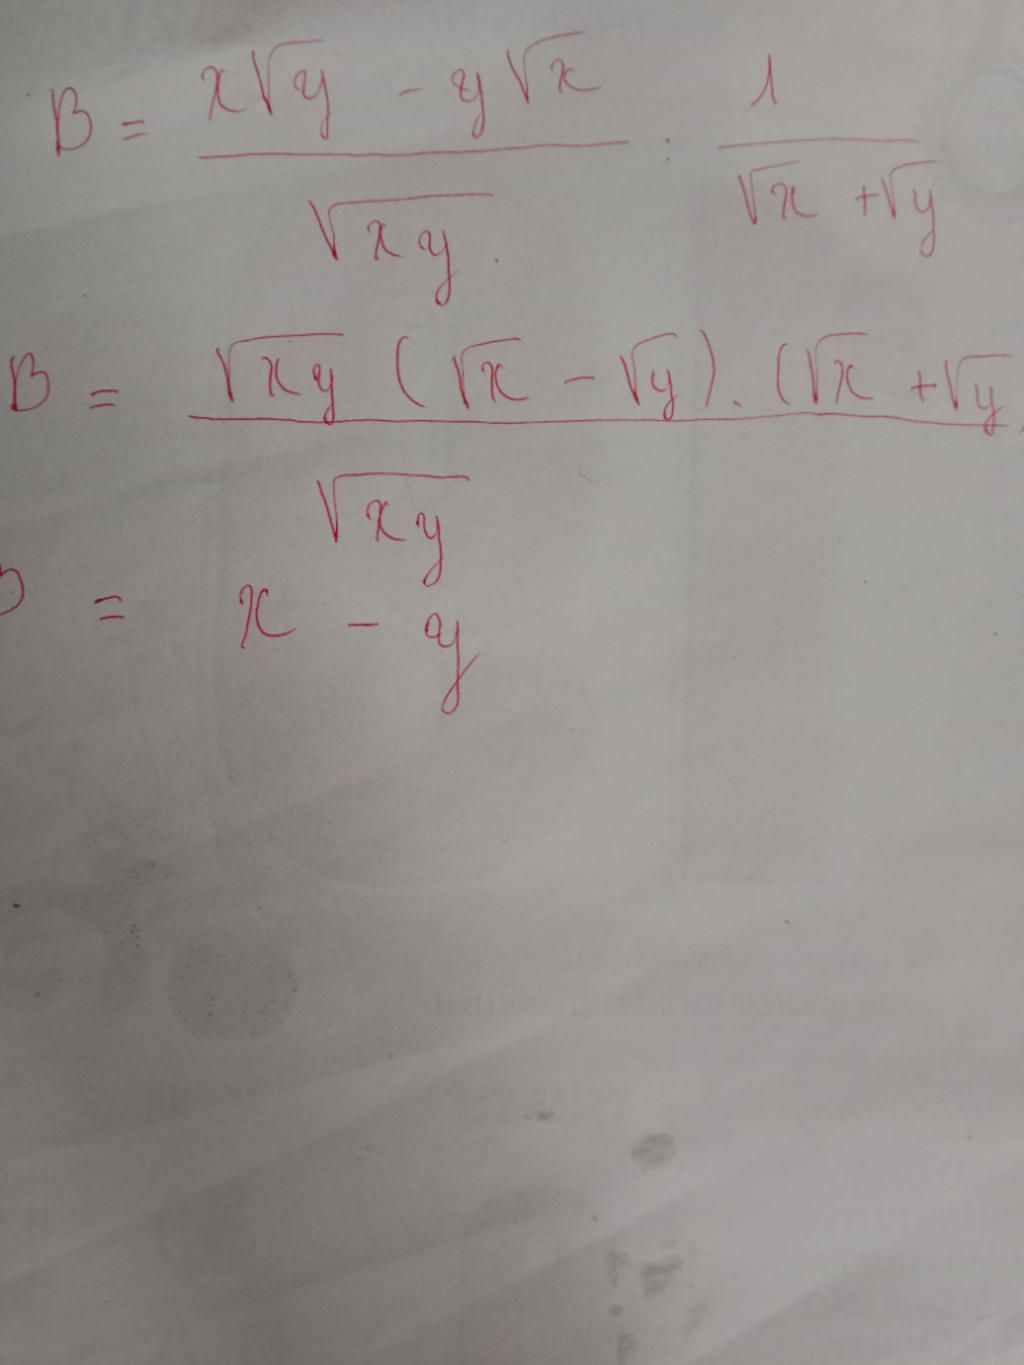 B = x√y - y√x / √xy : 1 / √x + √y
B = √xy (√x - √y) . (√x + √y) / √xy
B = x - y